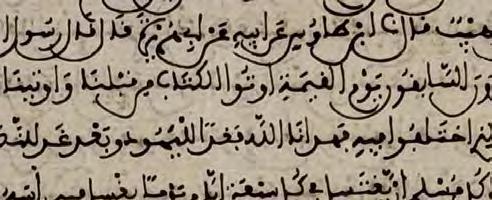 وهيب قال نا ابن طاوس عن ابيه عن ابي هريرة قال قال رسول ا
ون السابقون يوم القيمة اوتوا الكتاب من قبلنا واوتينا
اختلفوا فيه فهدانا الله فغدا لليهود وبعد غد للنص
كل مسلم ان يغتسل في كل سبعة ايام يوما يغسل فيه راسه